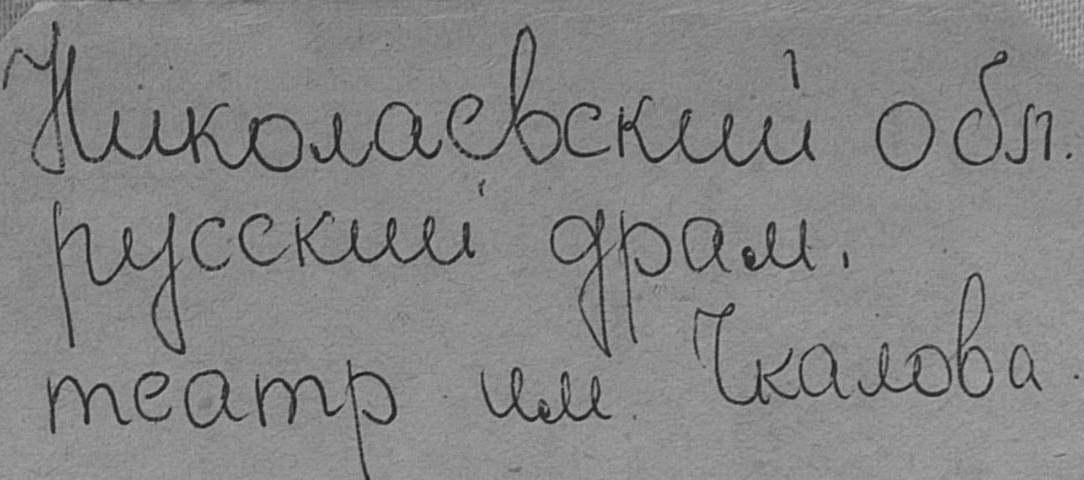 Николаевский обл.
русский драм.
театр им. Чкалова.